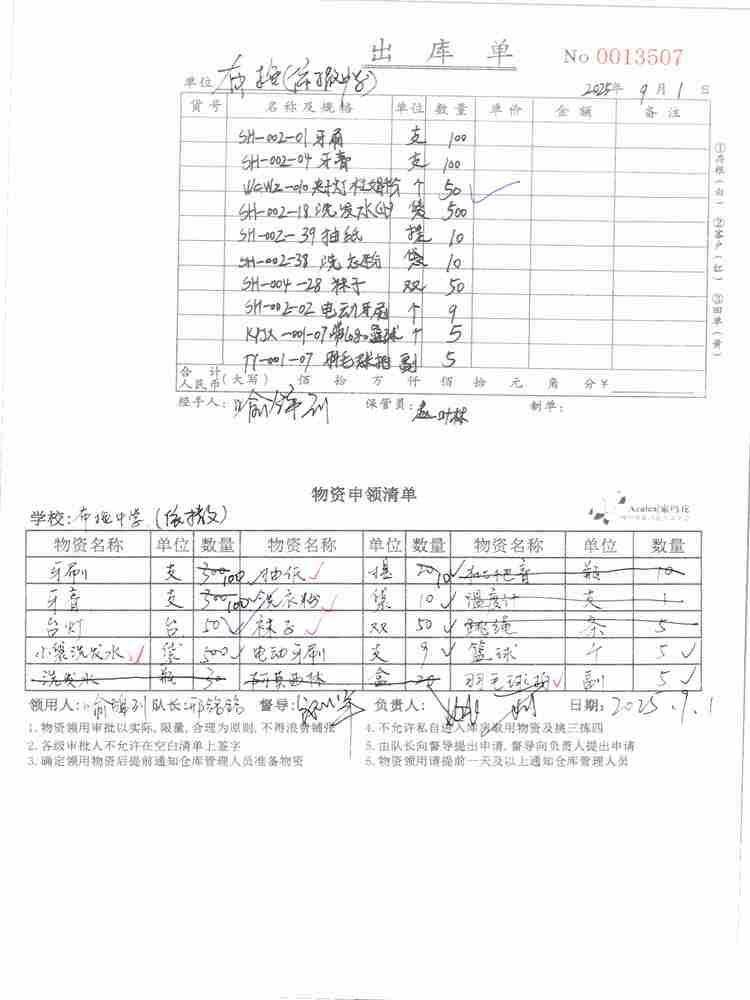 出 库 单
No 0013507
单位 布拖(依撒 )
2025年 9月 1日
货号 名称及规格 单位 数量 单价 金额 备注
SH-002-01 牙刷 支 100
SH-002-04 牙膏 支 100
WCWZ-010 台灯 个 50
SH-002-18 洗发水(小) 袋 500
SH-002-39 抽纸 提 10
SH-002-38 洗衣粉 袋 10
SH-004-28 袜子 双 50
SH-002-02 电动牙刷 个 9
-001-07 篮球 个 5
TY-001-07 羽毛球拍 副 5
合计
人民币(大写) 佰 拾 万 仟 佰 拾 元 角 分¥
经手人: 保管员: 制单:
①存根(白) ②客户(红) ③回单(黄)
物资申领清单
Azalea
学校:布拖中学(依撒)
物资名称 单位 数量 物资名称 单位 数量 物资名称 单位 数量
牙刷 支 300 100 抽纸 提 20 10 瓶 10
牙膏 支 300 100 洗衣粉 袋 10 温度计 支 1
台灯 台 50 袜子 双 50 跳绳 条 5
小袋洗发水 袋 500 电动牙刷 支 9 篮球 个 5
洗发水 瓶 30 阿莫西林 盒 20 羽毛球拍 副 5
领用人: 队长: 督导: 负责人: 日期: 2025.9.1
1.物资领用审批以实际,限量,合理为原则,不得浪费铺张
2.各级审批人不允许在空白清单上签字
3.确定领用物资后提前通知仓库管理人员准备物资
4.不允许私自进入库房取用物资及挑三拣四
5.由队长向督导提出申请,督导向负责人提出申请
6.物资领用请提前一天及以上通知仓库管理人员